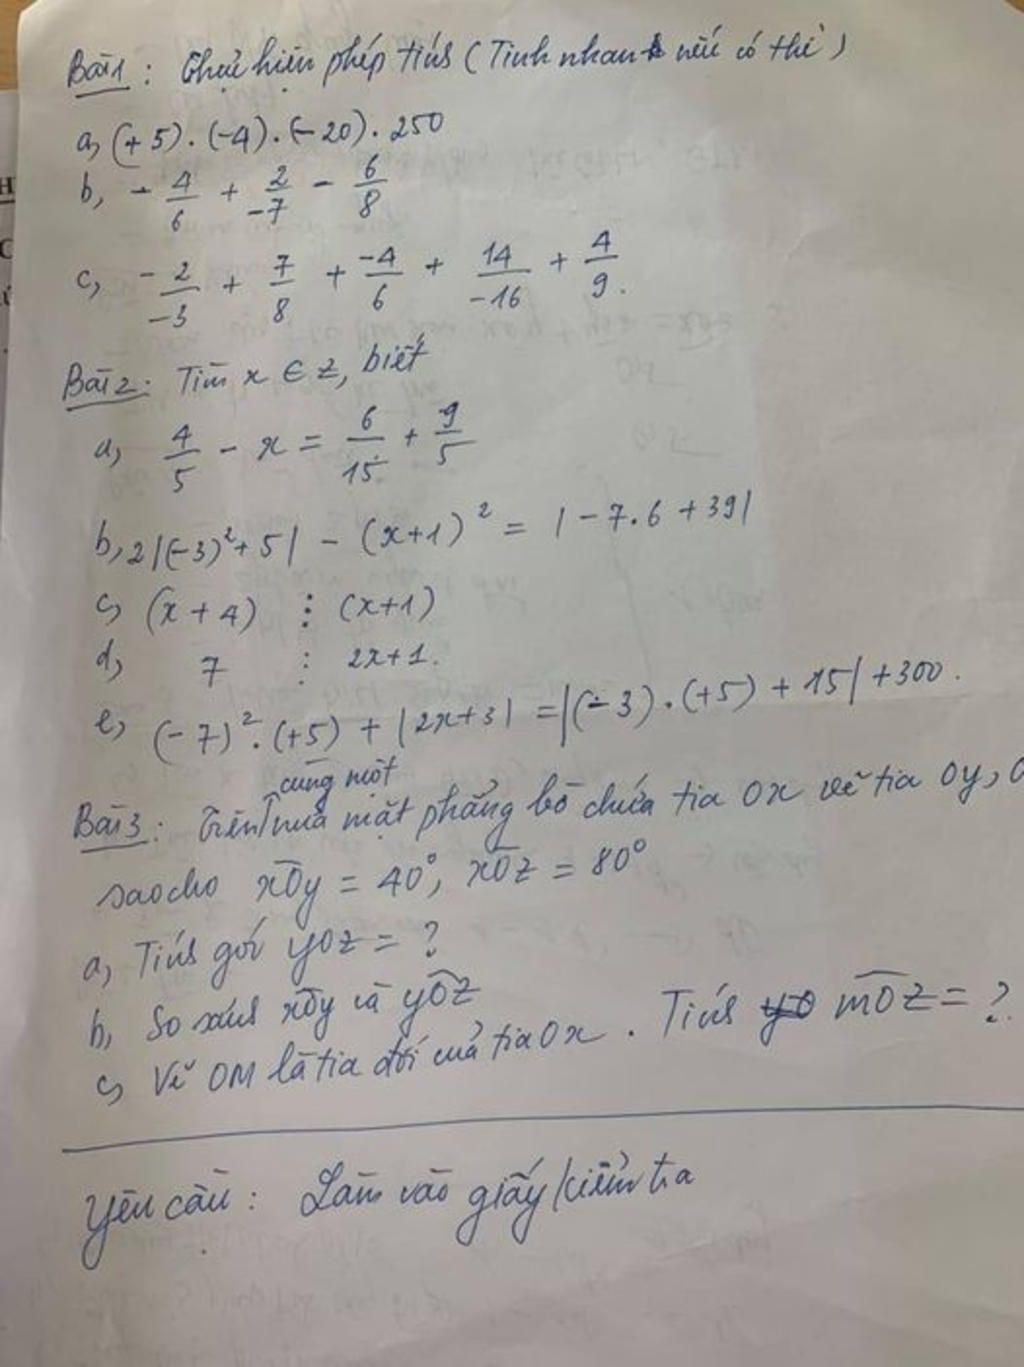 Bài 1: Thực hiện phép tính (Tính nhanh nếu có thể)
a, (+5).(-4).(-20).250
b, - 4/6 + 2/-7 - 6/8
c, - 2/-3 + 7/8 + -4/6 + 14/-16 + 4/9.
Bài 2: Tìm x ∈ Z, biết
a, 4/5 - x = 6/15 + 9/5
b, 2|(-3)²+5| - (x+1)² = |-7.6+39|
c, (x+4) ⋮ (x+1)
d, 7 ⋮ 2x+1.
e, (-7)².(+5) + |2x+3| = |(-3).(+5)+15| +300.
Bài 3: Trên cùng một nửa mặt phẳng bờ chứa tia Ox vẽ tia Oy, O
sao cho xOy = 40°, xOz = 80°
a, Tính góc yOz = ?
b, So sánh xOy và yOz
c, Vẽ OM là tia đối của tia Ox. Tính mOz = ?
Yêu cầu: Làm vào giấy kiểm tra